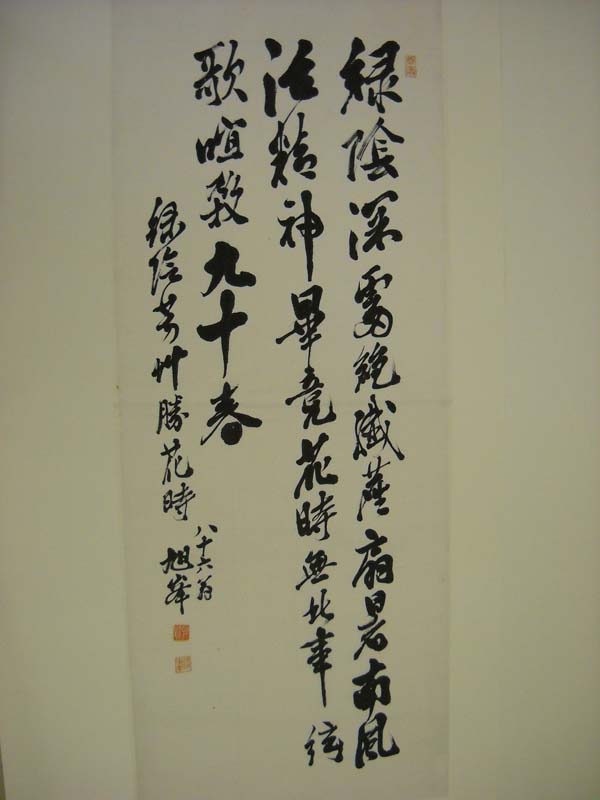 緑陰深處絶纖塵扇暑南風
活精神畢竟花時無此事絃
歌喧殺九十春
緑陰芳艸勝花時
八十六翁
旭峯